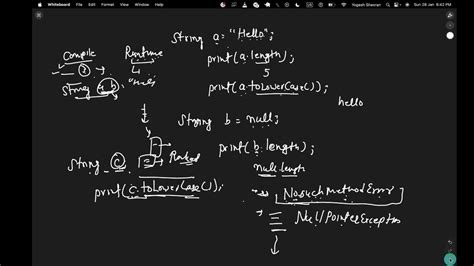 Whiteboard File Edit View Window Help
Yogesh Sheoran Sun 28 Jan 8:42 PM
String a = "Hello";
Compile Runtime
print(a.length);
5
String a b
print(a.toLowerCase());
hello
String b = null;
print(b.length);
null.length
String c
print(c.toLowerCase());
NosuchMethodError
Null/PointerException
Undo
Redo